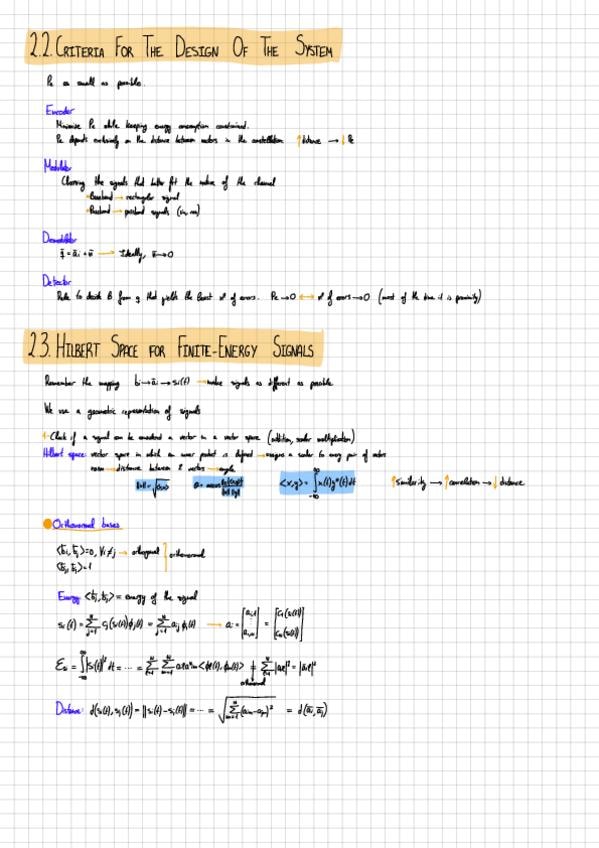 2.2. CRITERIA FOR THE DESIGN OF THE SYSTEM
Pe as small as possible.
Encoder
Minimize Pe while keeping energy consumption constrained.
Pe depends exclusively on the distance between vectors in the constellation ↑distance → ↓Pe
Modulator
Choosing the signals that better fit the nature of the channel
Baseband → rectangular signal
Passband → passband signals (sin, cos)
Demodulator
q̄ = āi + n̄ → Ideally, n̄→0
Detector
Rule to decide B from q that yields the lowest nº of errors. Pe→0 ↔ nº of errors→0 (most of the time it is proximity)
2.3. HILBERT SPACE FOR FINITE-ENERGY SIGNALS
Remember the mapping bi → āi → si(t) → make signals as different as possible
We use a geometric representation of signals
Check if a signal can be considered a vector in a vector space (addition, scalar multiplication)
Hilbert space: vector space in which an inner product is defined → assigns a scalar to every pair of vectors
norm → distance between 2 vectors → angle
||x|| = √<x,x> <x,y> = ∫_{-∞}^{∞} x(t)y*(t)dt ↑Similarity → ↑correlation → ↓distance
Orthonormal bases
=0, ∀i≠j → orthogonal } orthonormal
=1
Energy = energy of the signal
si(t) = Σ_{j=1}^{N} cj(si(t))ϕj(t) = Σ_{j=1}^{N} aij ϕj(t) → āi = [ai,1 ⋮ ai,N] = [c1(si(t)) ⋮ cN(si(t))]
Esi = ∫_{-∞}^{∞} |si(t)|² dt = ⋯ =
orthonormal
Distance: d(si(t), sj(t)) = ||si(t) − sj(t)|| = ⋯ = √(Σ_{m=1}^{N} (aim − ajm)²) = d(āi, āj)